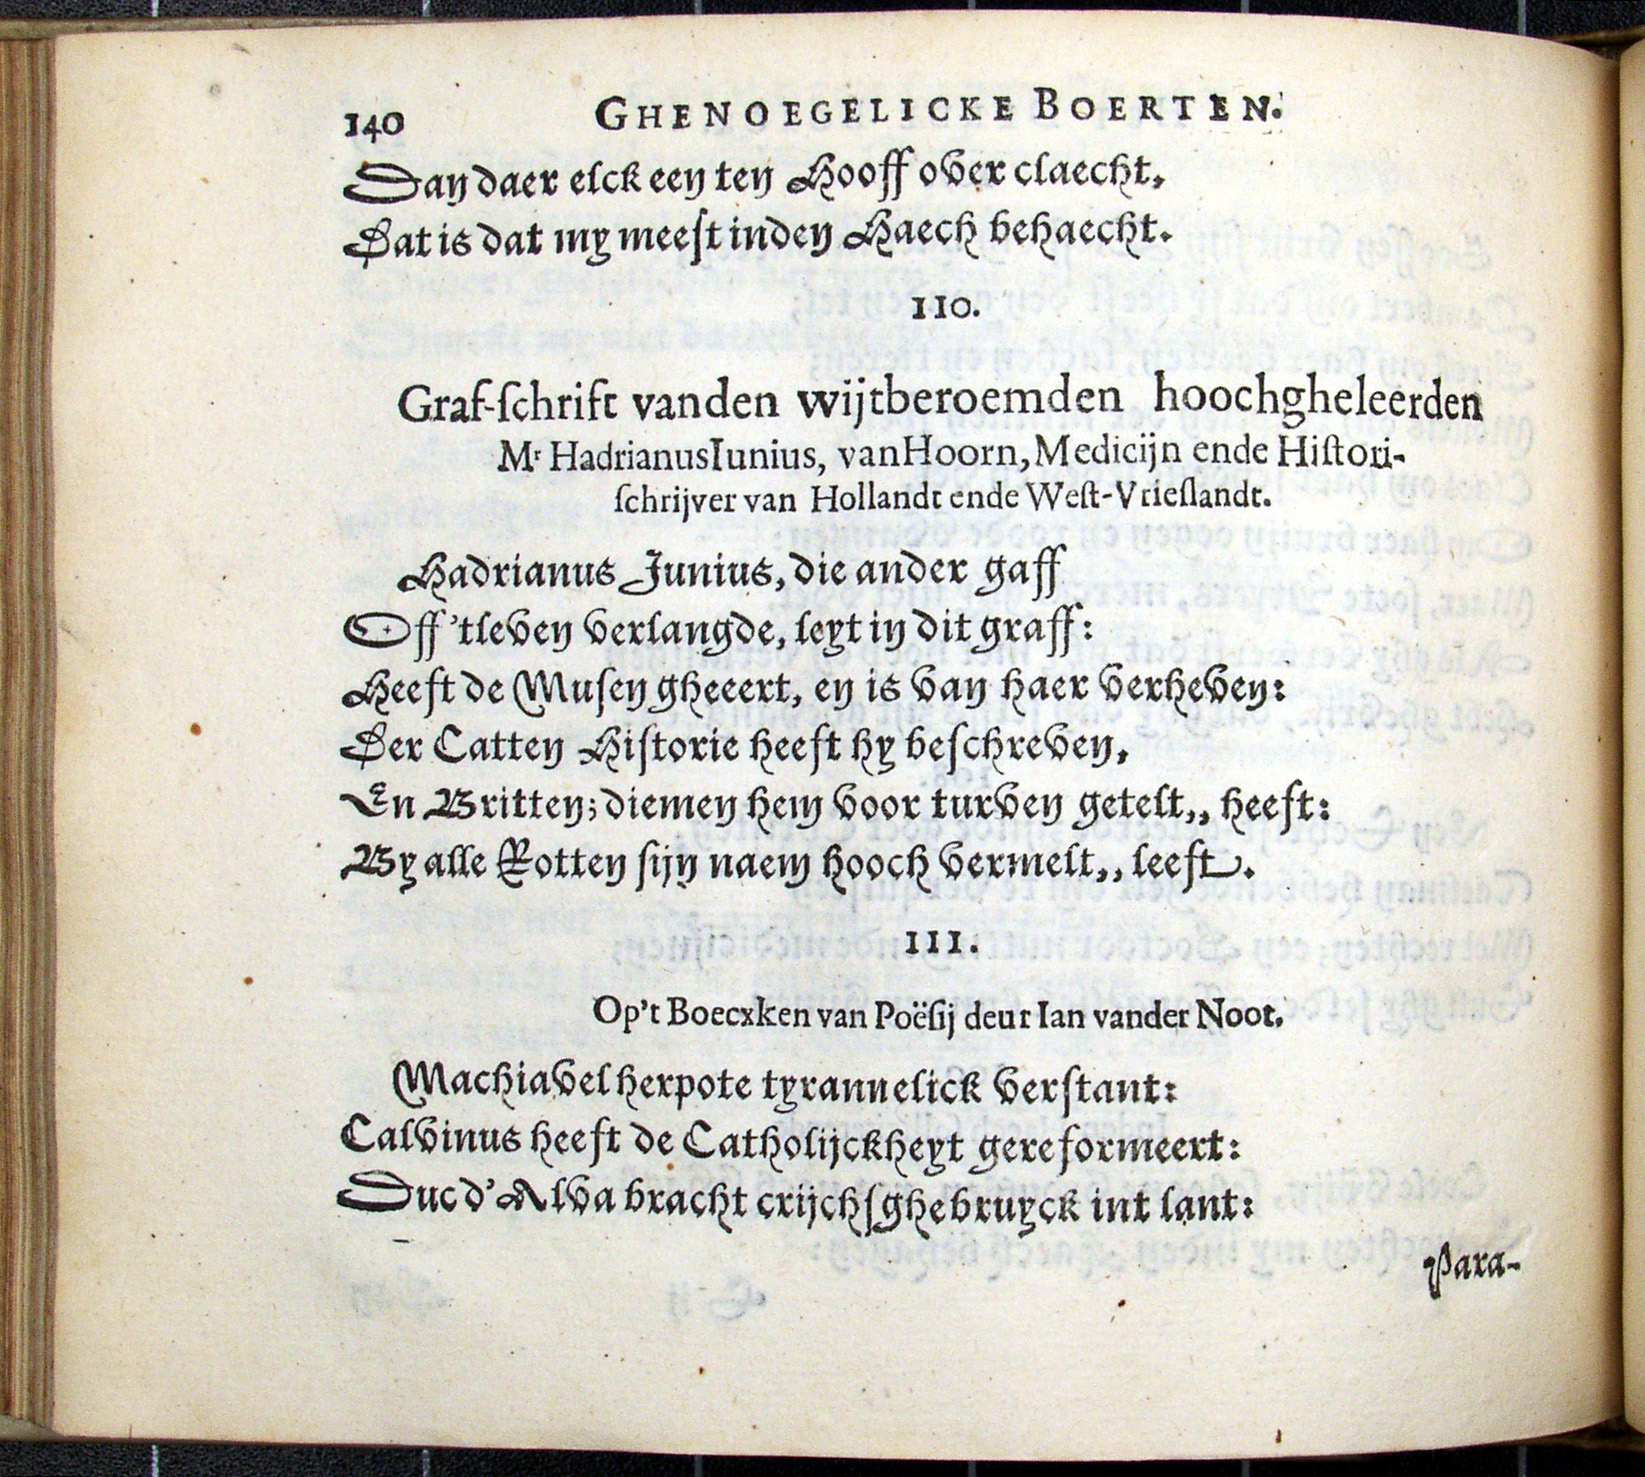 140 GHENOEGELICKE BOERTEN.
Dan daer elck een ten Hooff over claecht,
Dat is dat my meest inden Haech behaecht.
110.
Graf-schrift vanden wijtberoemden hoochgheleerden
Mr Hadrianus Iunius, van Hoorn, Medicijn ende Histori-
schrijver van Hollandt ende West-Vrieslandt.
Hadrianus Junius, die ander gaff
Off 'tleven verlangde, leyt in dit graff:
Heeft de Musen gheeert, en is van haer verheven:
Der Catten Historie heeft hy beschreven,
En Britten; diemen hem voor turven getelt,, heeft:
By alle Rotten sijn naem hooch vermelt,, leeft.
111.
Op't Boecxken van Poësij deur Ian vander Noot.
Machiavel herpote tyrannelick verstant:
Calvinus heeft de Catholijckheyt gereformeert:
Duc d'Alva bracht crijchsghebruyck int lant:
Para-